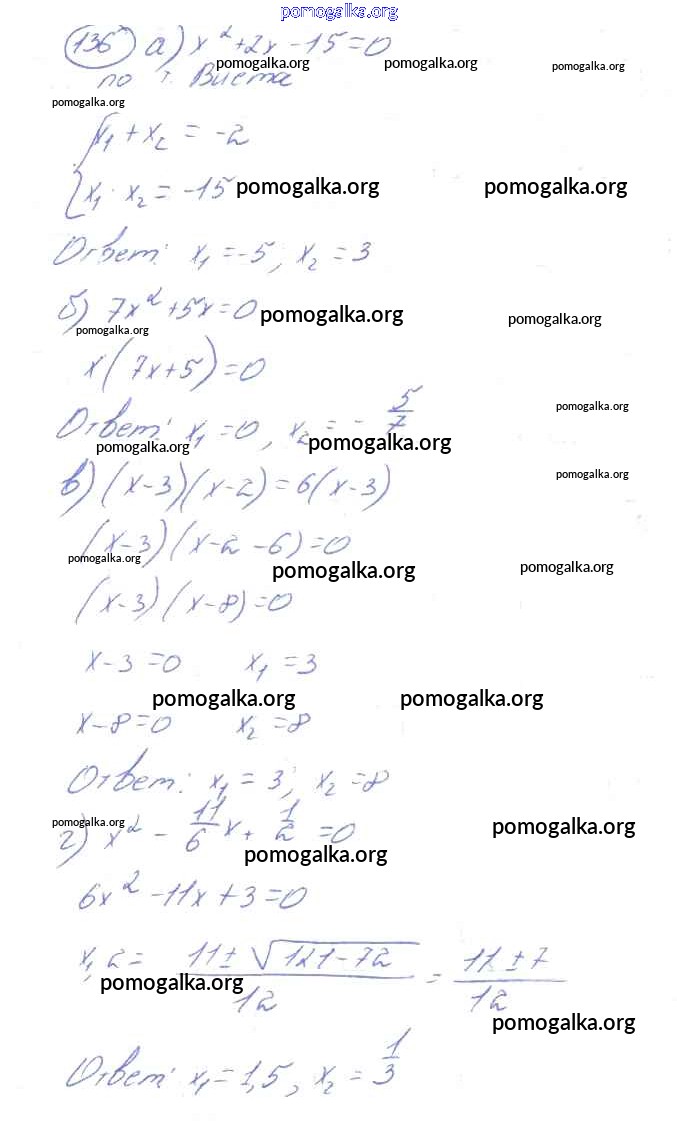 pomogalka.org
136 а) x² + 2x - 15 = 0
pomogalka.org pomogalka.org pomogalka.org
по т. Виета
pomogalka.org
{ x₁ + x₂ = -2
{ x₁ · x₂ = -15 pomogalka.org pomogalka.org
Ответ: x₁ = -5; x₂ = 3
б) 7x² + 5x = 0 pomogalka.org pomogalka.org
pomogalka.org
x(7x+5) = 0
pomogalka.org
Ответ: x₁ = 0, x₂ = - 5/7
pomogalka.org pomogalka.org
в) (x-3)(x-2) = 6(x-3) pomogalka.org
(x-3)(x-2-6) = 0
pomogalka.org pomogalka.org pomogalka.org
(x-3)(x-8) = 0
x-3 = 0 x₁ = 3
pomogalka.org pomogalka.org
x-8 = 0 x₂ = 8
Ответ: x₁ = 3; x₂ = 8
pomogalka.org pomogalka.org
г) x² - 11/6 x + 1/2 = 0
pomogalka.org
6x² - 11x + 3 = 0
x₁,₂ = (11 ± √(121-72))/12 = (11 ± 7)/12
pomogalka.org
pomogalka.org
Ответ: x₁ = 1,5, x₂ = 1/3